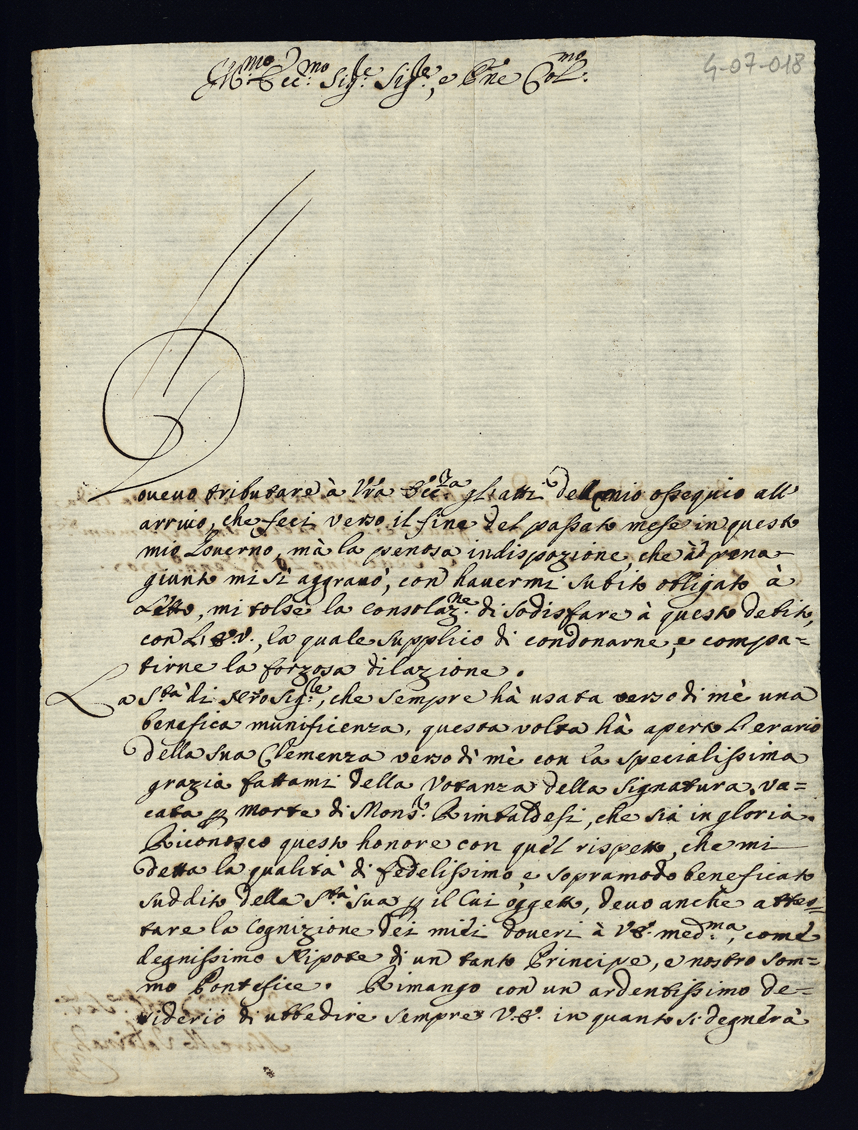 Ill.mo Ecc.mo Sig.re Sig.re, e Pne Col.mo
4-07-018
Dovevo tributare à Vra Ecc.za gl'atti del mio ossequio all'
arrivo, che feci verso il fine del passato mese in questo
mio Governo, mà la penosa indisposizione che àd pena
giunto mi si aggravò, con havermi subito obligato à
Letto, mi tolse la consolaz.ne di sodisfare à questo debito,
con L'E.V., la quale supplico di condonarne, e compa=
tirne la forzosa dilazione.
La S.tà di Nro Sig.re, che sempre hà usata verso di mè una
benefica munificenza, questa volta hà aperto l'erario
della sua Clemenza verso di mè con la specialissima
grazia fattami della Votanza della Signatura, va=
cata p morte di Mons.r Rimbaldesi, che sia in gloria.
Riconosco questo honore con quel rispetto, che mi
detta la qualità di fedelissimo e sopramodo beneficato
suddito della S.tà Sua p il cui oggetto, devo anche attes=
tare la Cognizione dei miei doveri à V.E. med.ma, come
degnissimo Nipote di un tanto Principe, e nostro Som=
mo Pontefice. Rimango con un ardentissimo de=
siderio di ubbedire sempre V.E. in quanto si degnerà